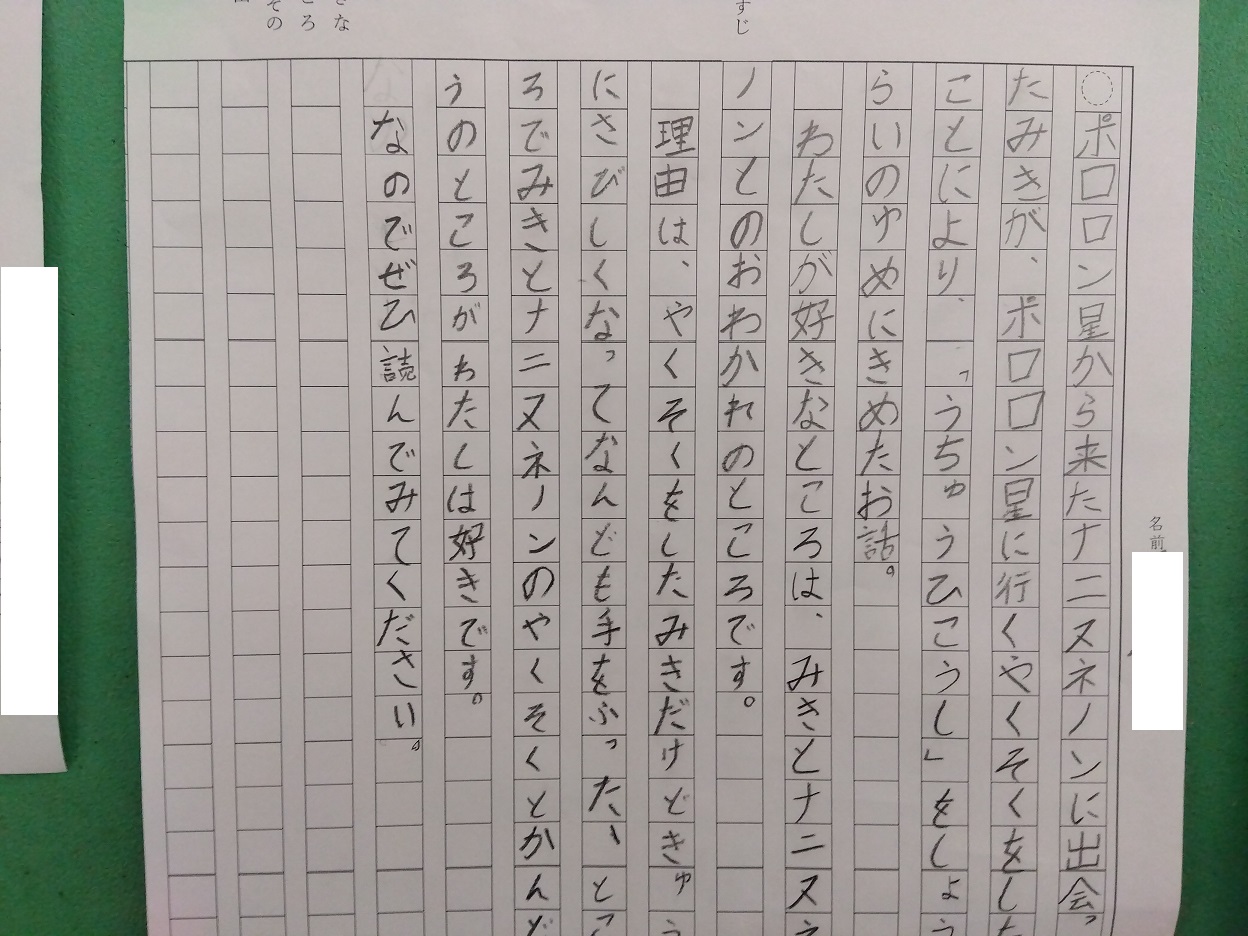 名前
ポロロン星から来たナニヌネノンに出会っ
たみきが、ポロロン星に行くやくそくをした
ことにより、「うちゅうひこうし」をしょう
らいのゆめにきめたお話。
わたしが好きなところは、みきとナニヌネ
ノンとのおわかれのところです。
理由は、やくそくをしたみきだけどきゅう
にさびしくなってなんども手をふった、とこ
ろでみきとナニヌネノンのやくそくとかんど
うのところがわたしは好きです。
なのでぜひ読んでみてください。
すじ
ころ
その